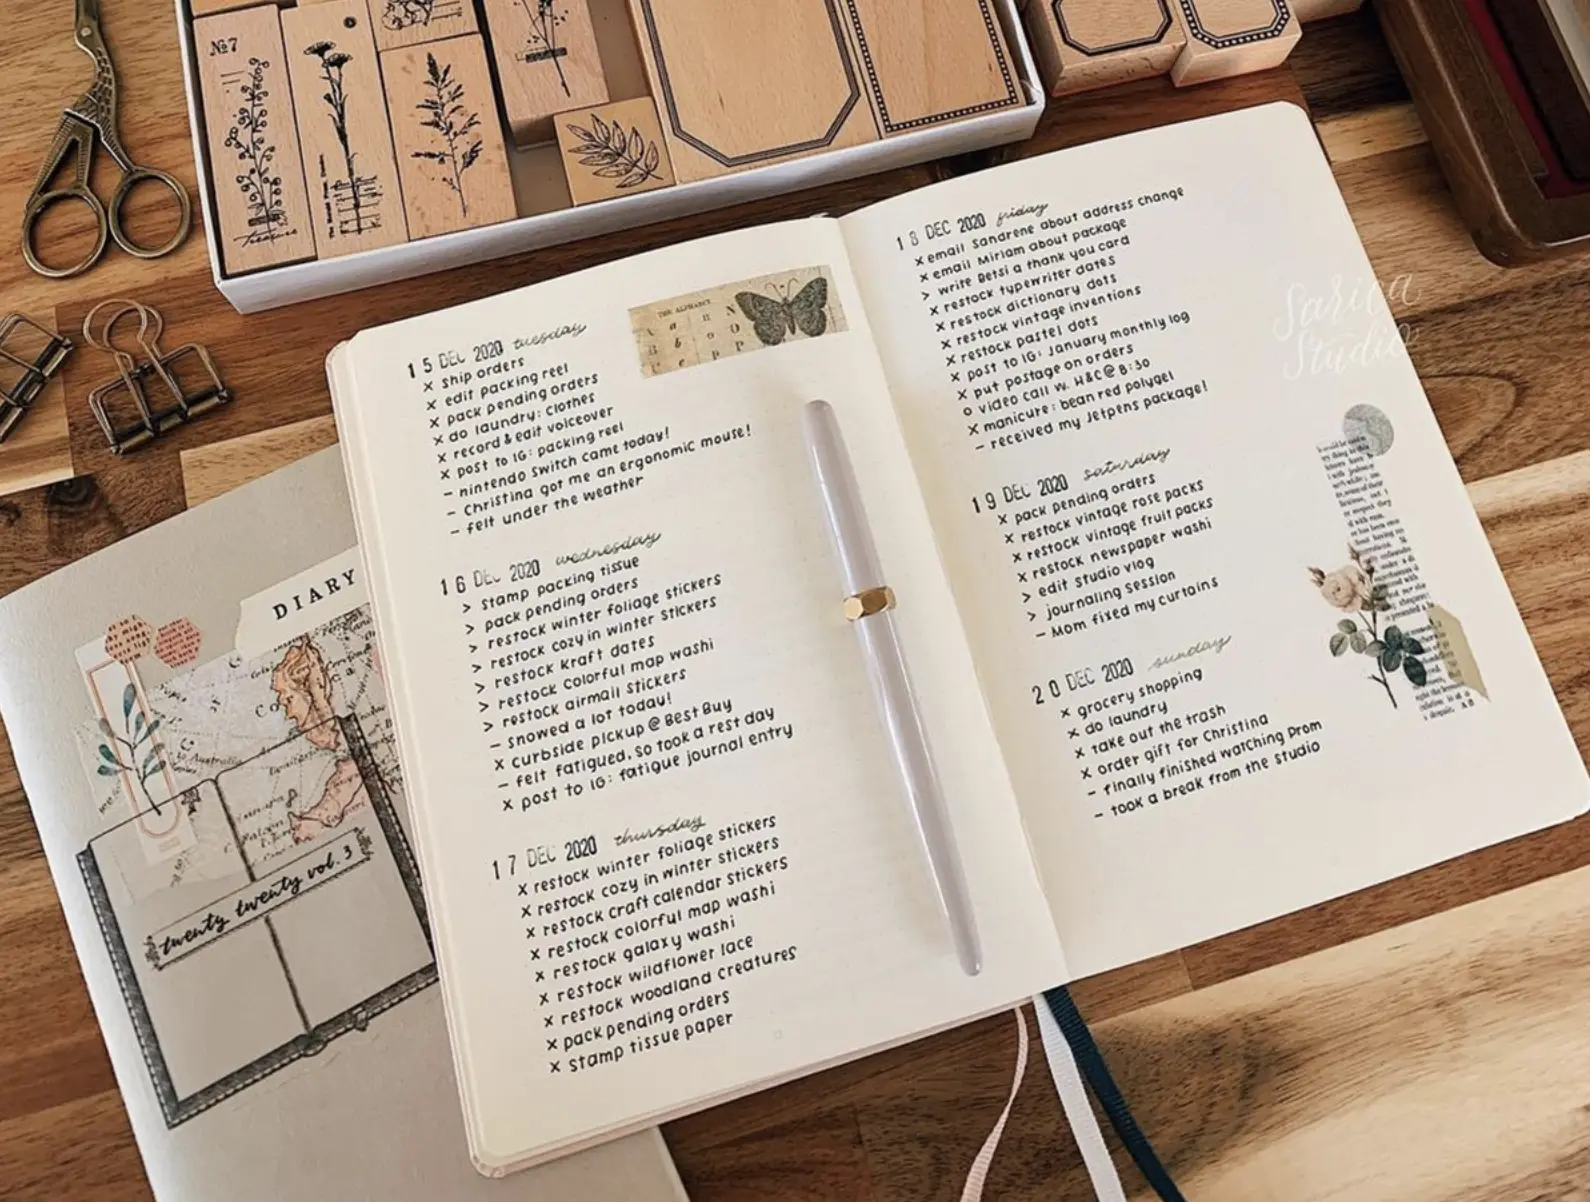 №7
treasure
THE ALPHABET
15 DEC 2020 tuesday
x ship orders
x edit packing reel
x pack pending orders
x do laundry: clothes
x record & edit voiceover
x post to IG: packing reel
– nintendo switch came today!
– Christina got me an ergonomic mouse!
– felt under the weather
16 DEC 2020 wednesday
> stamp packing tissue
> pack pending orders
> restock winter foliage stickers
> restock cozy in winter stickers
> restock kraft dates
> restock colorful map washi
> restock airmail stickers
– snowed a lot today!
x curbside pickup @ Best Buy
– felt fatigued, so took a rest day
x post to IG: fatigue journal entry
17 DEC 2020 thursday
x restock winter foliage stickers
x restock cozy in winter stickers
x restock craft calendar stickers
x restock colorful map washi
x restock galaxy washi
x restock wildflower lace
x restock woodland creatures
x pack pending orders
x stamp tissue paper
18 DEC 2020 friday
x email Sandrene about address change
x email Miriam about package
> write Betsi a thank you card
x restock typewriter dates
x restock dictionary dots
x restock vintage inventions
x restock pastel dots
x post to IG: January monthly log
x put postage on orders
o video call w. H&C @ 8:30
x manicure: bean red polygel
– received my Jetpens package!
19 DEC 2020 saturday
x pack pending orders
x restock vintage rose packs
x restock vintage fruit packs
x restock newspaper washi
> edit studio vlog
> journaling session
– Mom fixed my curtains
20 DEC 2020 sunday
x grocery shopping
x do laundry
x take out the trash
x order gift for Christina
– finally finished watching Prom
– took a break from the studio
Sarita
Studio
DIARY
to Australia
twenty twenty vol. 3